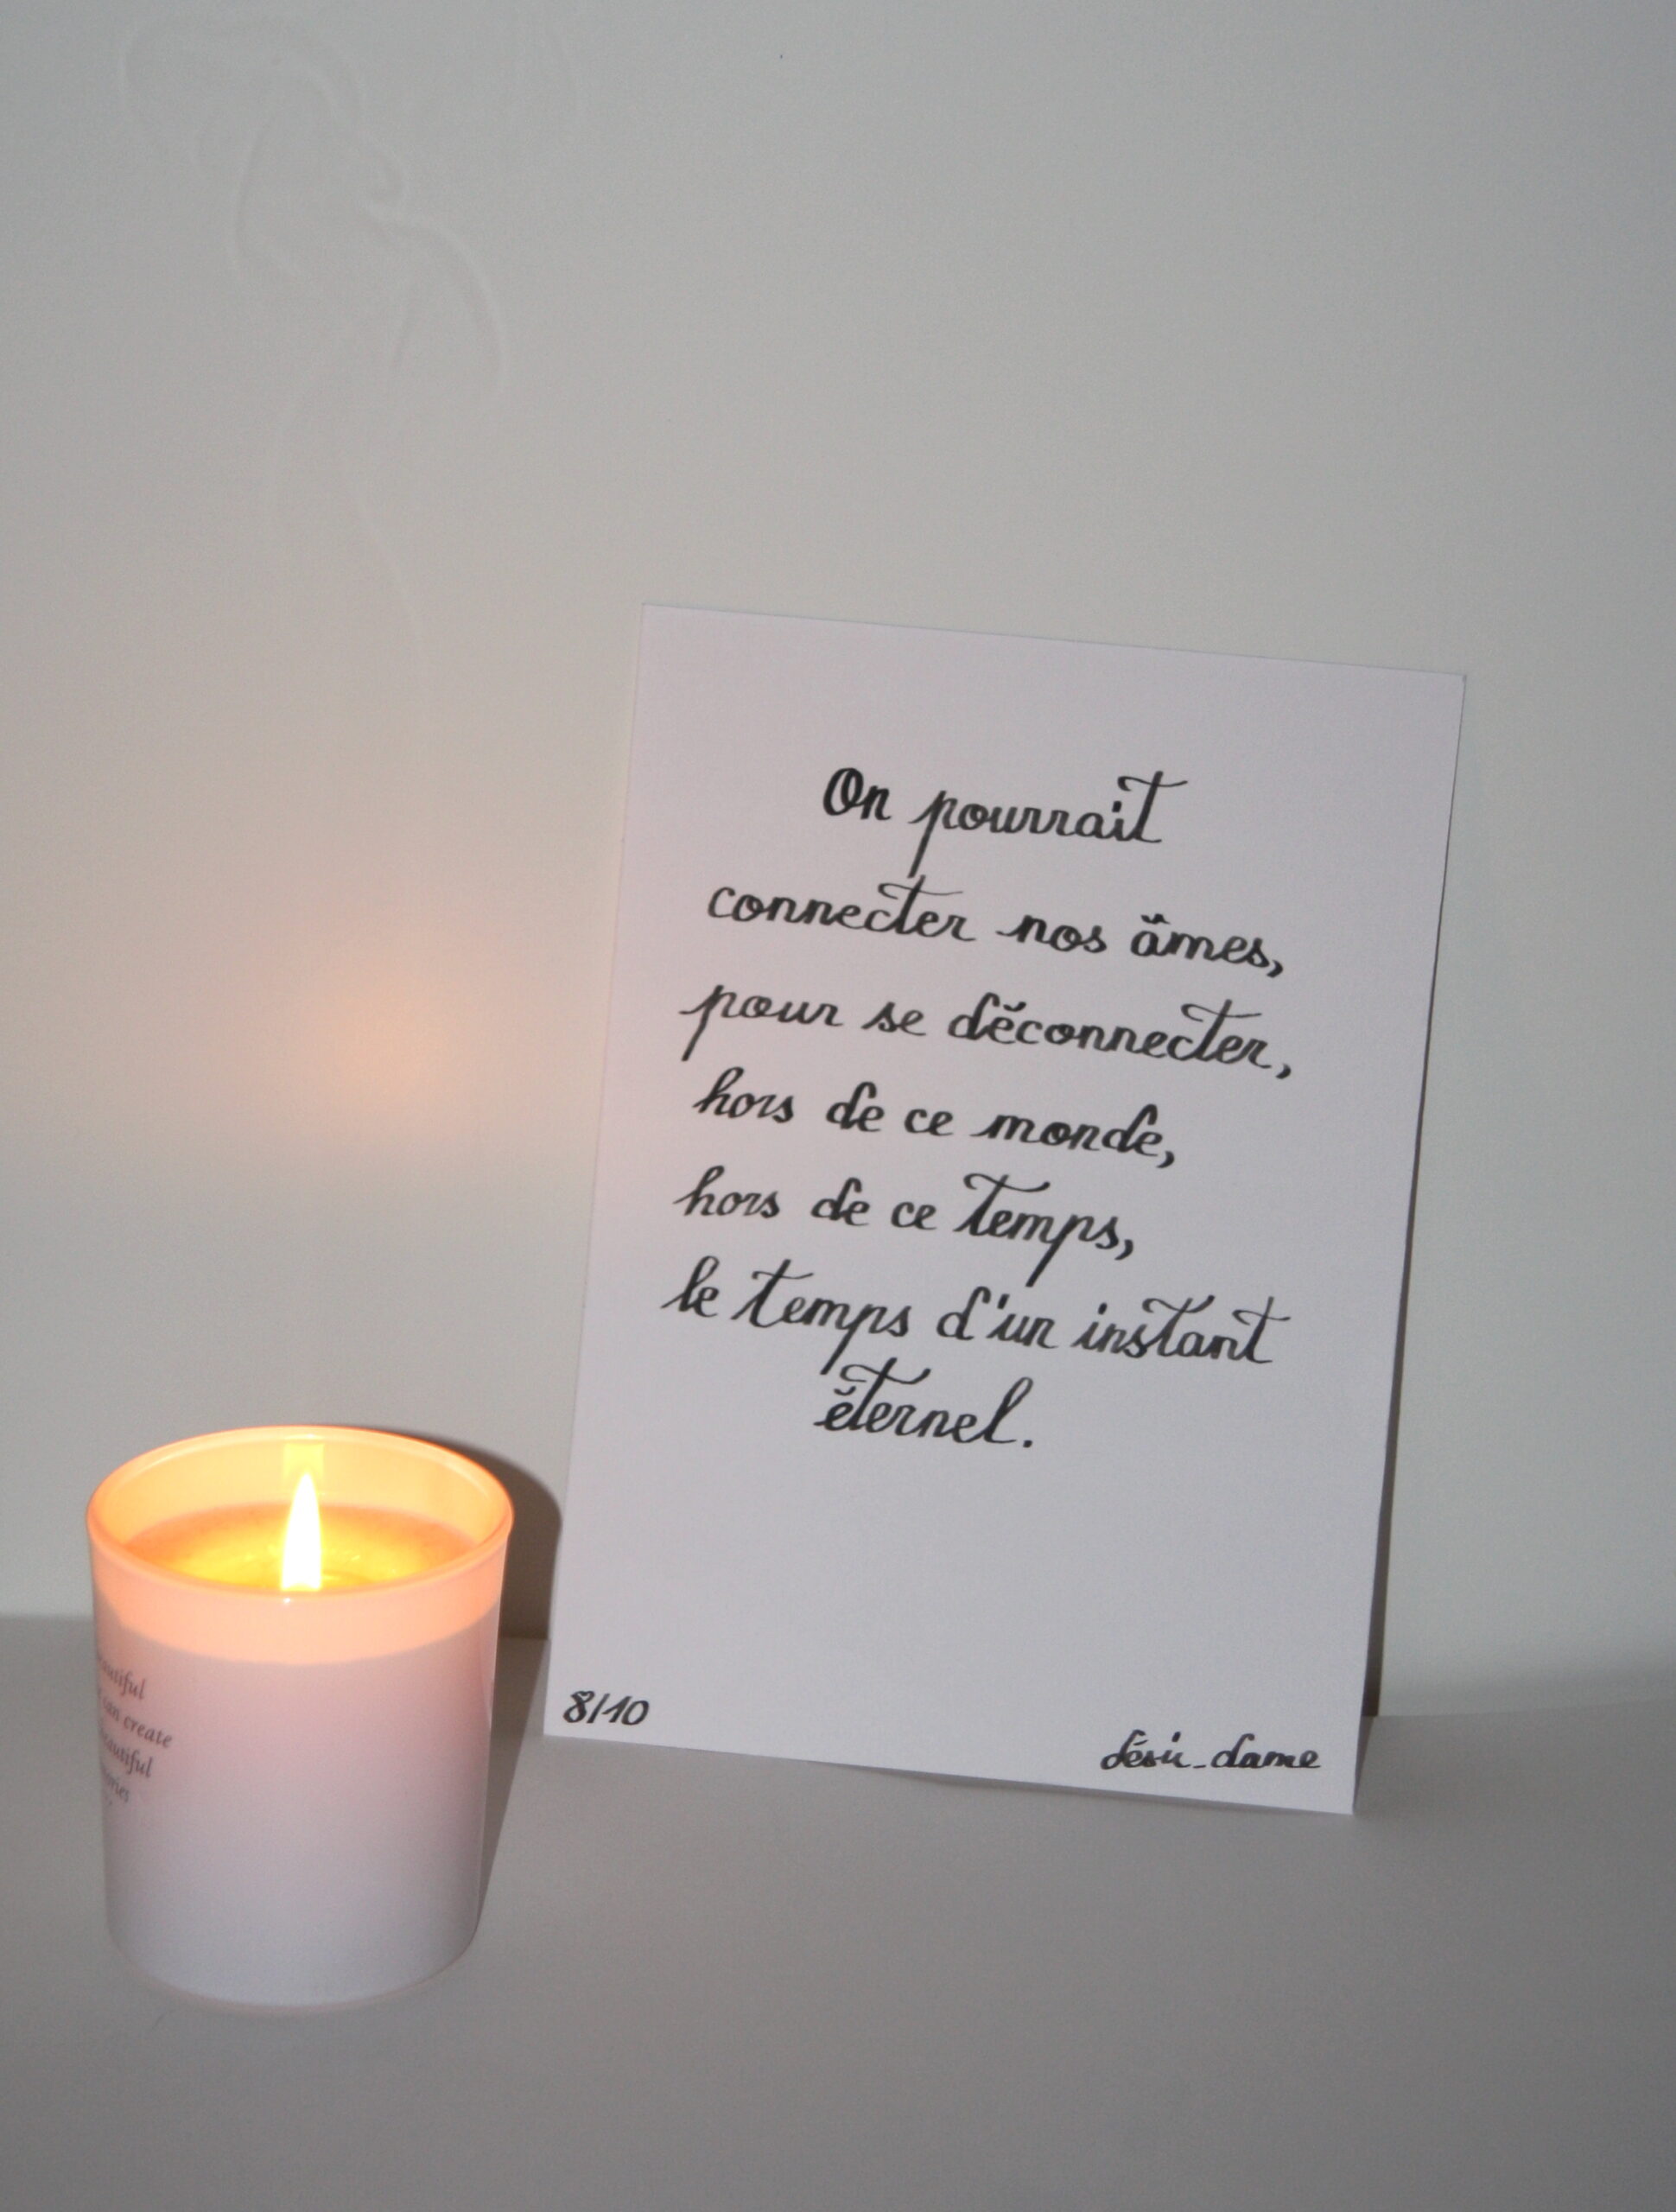 On pourrait
connecter nos âmes,
pour se déconnecter,
hors de ce monde,
hors de ce temps,
le temps d'un instant
éternel.
8/10
désir_dame
can create